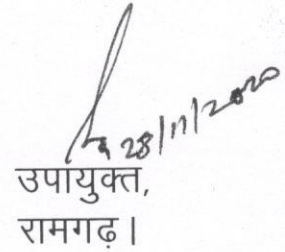 28/11/2020
उपायुक्त,
रामगढ़।